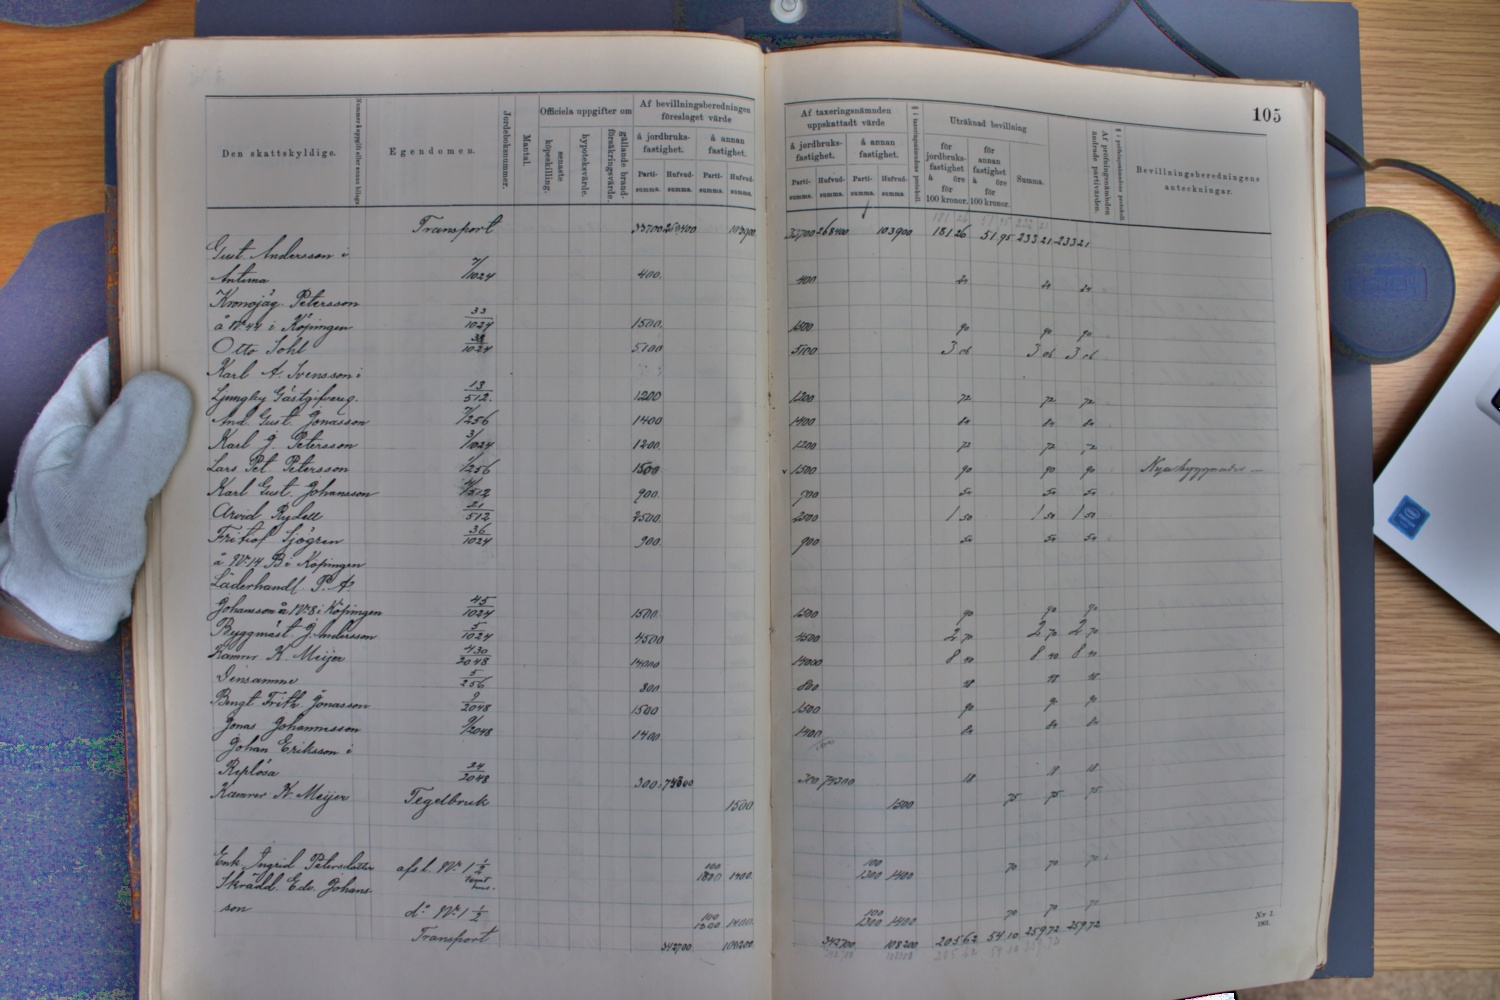 105
Den skattskyldige.
Egendomen.
Jordeboksnummer.
Mantal.
Officiela uppgifter om
senaste köpeskilling.
hypoteksvärde.
gällande brand-försäkringsvärde.
Af bevillningsberedningen föreslaget värde
å jordbruks-fastighet.
å annan fastighet.
Parti-summa.
Hufvud-summa.
Parti-summa.
Hufvud-summa.
Af taxeringsnämnden uppskattadt värde
å jordbruks-fastighet.
å annan fastighet.
Parti-summa.
Hufvud-summa.
Parti-summa.
Hufvud-summa.
§ i taxeringsnämndens protokoll.
Uträknad bevillning
för jordbruks-fastighet å öre för 100 kronor.
för annan fastighet å öre för 100 kronor.
Summa.
Af pröfningsnämnden ändrade partivärden.
Bevillningsberedningens anteckningar.
Transport 33700 268400 103900 33700 268400 103900 181 26 51.95 233 21 233 21
Gust. Andersson i
Antuna 7/1024 400. 400 24 24 24
Kronojäg. Petersson
å No 44 i Köpingen 33/1024 1500. 1500 90 90 90
Otto Sohl 1024 5100 5100 3 06 3 06 3 06
Karl A. Svensson i
Ljungby Gästgifvareg. 13/512. 1200 1200 72 72 72
And. Gust. Jonasson 7/256 1400 1400 84 84 84
Karl J. Petersson 3/1024 1200. 1200 72 72 72
Lars Pet. Petersson /256 1500 1500 90 90 90 Nya byggnader
Karl Gust. Johansson /512 900. 900 54 54 54
Arvid Rydell 21/512 2500. 2500 1 50 1 50 1 50
Fritiof Sjögren 36/1024 900. 900 54 54 54
å No 14 B i Köpingen
Läderhandl. P. A.
Johansson å No 8 i Köpingen 45/1024 1500. 1500 90 90 90
Byggmäst. J. Andersson 5/1024 4500 4500 2 70 2 70 2 70
Kamrer K. Meijer 430/2048 14000 14000 8 40 8 40 8 40
Densamme 5/256 800 800 48 48 48
Bengt Frith. Jonasson 9/2048 1500 1500 90 90 90
Jonas Johannisson 9/2048 1400. 1400 84 84 84
Johan Eriksson i
Replösa 24/2048 300. 74300 300 74300 18 18 18
Kamrer K. Meijer Tegelbruk 1500 1500 75 75 75
Enk. Ingrid Petersdotter afs. l. No 1 1/2 100 1300 1400 100 1300 1400 70 70 70
Skrädd. Edv. Johans-
son do No 1 1/2 100 1300 1400. 100 1300 1400 70 70 70
Transport 342700 108200 342700 108200 205 62 54 10 259 72 259 72
No 2.
1901.